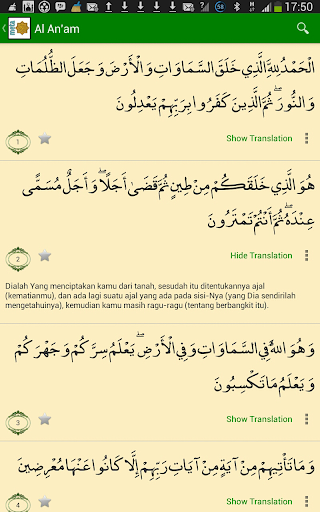 17:50
meta
Al An'am
الْحَمْدُ لِلَّهِ الَّذِي خَلَقَ السَّمَاوَاتِ وَالْأَرْضَ وَجَعَلَ الظُّلُمَاتِ
وَالنُّورَ ۖ ثُمَّ الَّذِينَ كَفَرُوا بِرَبِّهِمْ يَعْدِلُونَ
1
Show Translation
هُوَ الَّذِي خَلَقَكُمْ مِنْ طِينٍ ثُمَّ قَضَىٰ أَجَلًا ۖ وَأَجَلٌ مُسَمًّى
عِنْدَهُ ۖ ثُمَّ أَنْتُمْ تَمْتَرُونَ
2
Hide Translation
Dialah Yang menciptakan kamu dari tanah, sesudah itu ditentukannya ajal
(kematianmu), dan ada lagi suatu ajal yang ada pada sisi-Nya (yang Dia sendirilah
mengetahuinya), kemudian kamu masih ragu-ragu (tentang berbangkit itu).
وَهُوَ اللَّهُ فِي السَّمَاوَاتِ وَفِي الْأَرْضِ ۖ يَعْلَمُ سِرَّكُمْ وَجَهْرَكُمْ
وَيَعْلَمُ مَا تَكْسِبُونَ
3
Show Translation
وَمَا تَأْتِيهِمْ مِنْ آيَةٍ مِنْ آيَاتِ رَبِّهِمْ إِلَّا كَانُوا عَنْهَا مُعْرِضِينَ
4
Show Translation